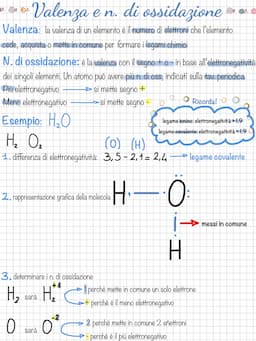 Valenza e n. di ossidazione
Valenza: la valenza di un elemento è il numero di elettroni che l'elemento
cede, acquista o mette in comune per formare i legami chimici
N. di ossidazione: è la valenza con il segno + o - in base all'elettronegatività
dei singoli elementi. Un atomo può avere più n. di oss, indicati sulla tav. periodica.
Più elettronegativo → si mette segno -
Meno elettronegativo → si mette segno +
Ricorda!
legame ionico: elettronegatività >1,9
legame covalente: elettronegatività <1,9
Esempio: H₂O
H₂ O₂ (O) (H)
1. differenza di elettronegatività: 3,5 - 2,1 = 2,4 → legame covalente
2. rappresentazione grafica della molecola H - O
messi in comune
H
3. determinare i n. di ossidazione
H₂ sarà H₂⁺¹ 1 perché mette in comune un solo elettrone
+ perché è il meno elettronegativo
O sarà O⁻² 2 perché mette in comune 2 elettroni
- perché è il più elettronegativo